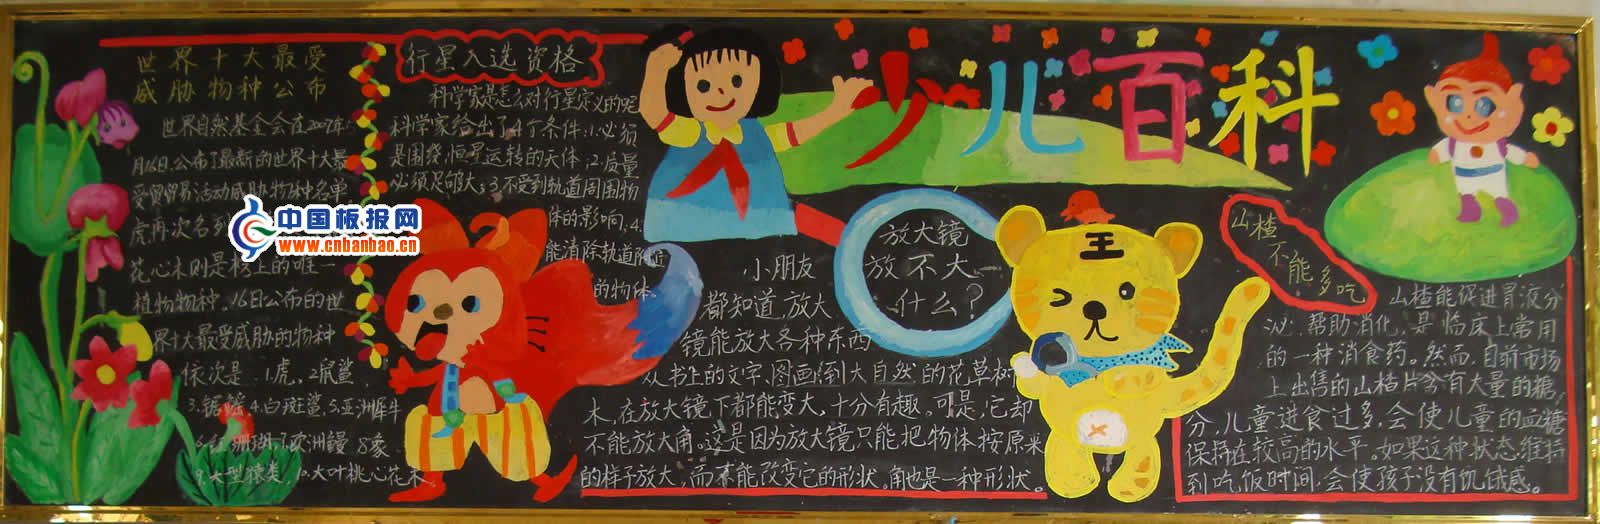 少儿百科
世界十大最受
威胁物种公布
世界自然基金会在2007年
月16日公布了最新的世界十大最
受贸贸易活动威胁物种名单
虎再次名列
花心木则是榜上的唯一
植物物种。16日公布的世
界十大最受威胁的物种
依次是 1.虎、2鼠鲨、
3.锯鳐、4.白斑鲨、5.亚洲犀牛
6.红珊瑚、7.欧洲鳗 8象
9.大型猿类、10.大叶桃心花木。
中国板报网
www.cnbanbao.cn
行星入选资格
科学家是怎么对行星定义的呢
科学家给出了4个条件:1.必须
是围绕恒星运转的天体;2.质量
必须足够大;3.不受到轨道周围物
体的影响,4.
能消除轨道附近
的物体。
放大镜
放不大
什么?
小朋友
都知道,放大
镜能放大各种东西
从书上的文字、图画到大自然的花草树
木,在放大镜下都能变大,十分有趣。可是,它却
不能放大角。这是因为放大镜只能把物体按原来
的样子放大,而不能改变它的形状。角也是一种形状。
王
山楂
不能
多吃
山楂能促进胃液分
泌,帮助消化,是临床上常用
的一种消食药。然而,目前市场
上出售的山楂片含有大量的糖
分,儿童进食过多,会使儿童的血糖
保持在较高的水平。如果这种状态维持
到吃饭时间,会使孩子没有饥饿感。